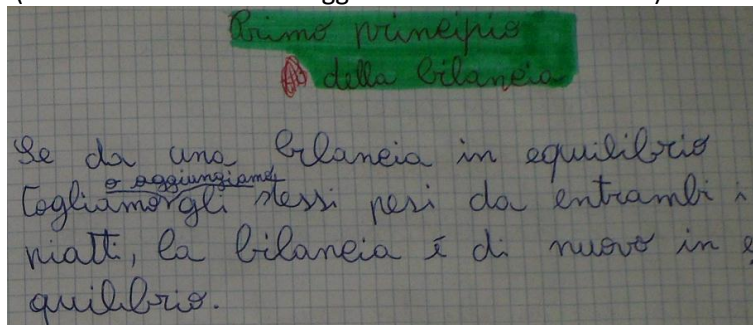 Primo principio
della bilancia
Se da una bilancia in equilibrio
o aggiungiamo
togliamo gli stessi pesi da entrambi i
piatti, la bilancia è di nuovo in e
quilibrio.